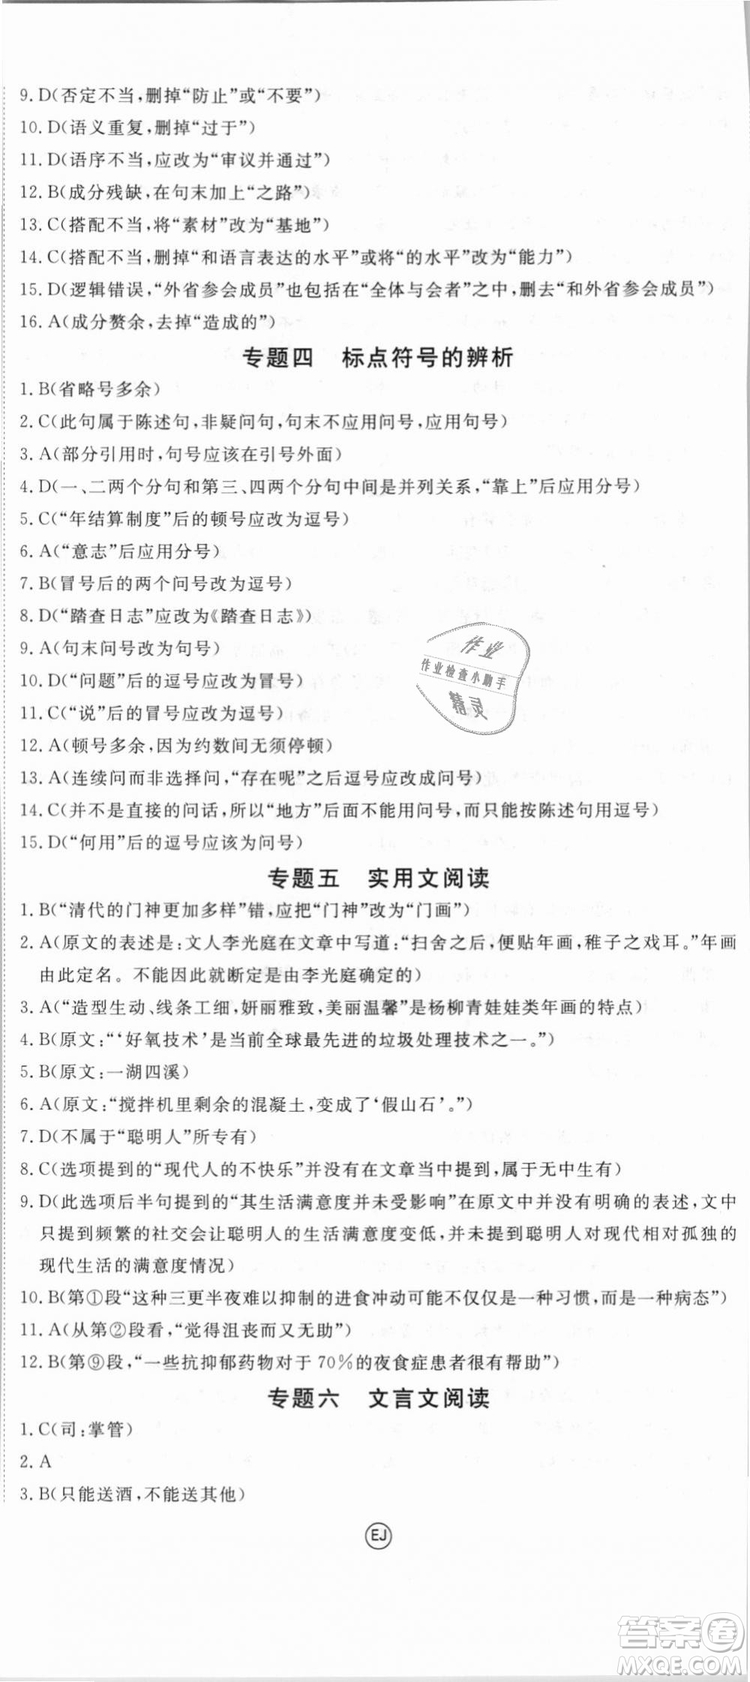 9. D(否定不当,删掉“防止”或“不要”)
10. D(语义重复,删掉“过于”)
11. D(语序不当,应改为“审议并通过”)
12. B(成分残缺,在句末加上“之路”)
13. C(搭配不当,将“素材”改为“基地”)
14. C(搭配不当,删掉“和语言表达的水平”或将“的水平”改为“能力”)
15. D(逻辑错误,“外省参会成员”也包括在“全体与会者”之中,删去“和外省参会成员”)
16. A(成分赘余,去掉“造成的”)
专题四 标点符号的辨析
1. B(省略号多余)
2. C(此句属于陈述句,非疑问句,句末不应用问号,应用句号)
3. A(部分引用时,句号应该在引号外面)
4. D(一、二两个分句和第三、四两个分句中间是并列关系,“靠上”后应用分号)
5. C(“年结算制度”后的顿号应改为逗号)
6. A(“意志”后应用分号)
7. B(冒号后的两个问号改为逗号)
8. D(“踏查日志”应改为《踏查日志》)
9. A(句末问号改为句号)
10. D(“问题”后的逗号应改为冒号)
11. C(“说”后的冒号应改为逗号)
12. A(顿号多余,因为约数间无须停顿)
13. A(连续问而非选择问,“存在呢”后逗号应改成问号)
14. C(并不是直接的问话,所以“地方”后面不能用问号,而只能按陈述句用逗号)
15. D(“何用”后的逗号应该为问号)
专题五 实用文阅读
1. B(“清代的门神更加多样”错,应把“门神”改为“门画”)
2. A(原文的表述是:文人李光庭在文章中写道:“扫舍之后,便贴年画,稚子之戏耳。”年画
由此定名。不能因此就断定是由李光庭确定的)
3. A(“造型生动、线条工细,妍丽雅致,美丽温馨”是杨柳青娃娃类年画的特点)
4. B(原文:“‘好氧技术’是当前全球最先进的垃圾处理技术之一。”)
5. B(原文:一湖四溪)
6. A(原文:“搅拌机里剩余的混凝土,变成了‘假山石’。”)
7. D(不属于“聪明人”所专有)
8. C(选项提到的“现代人的不快乐”并没有在文章当中提到,属于无中生有)
9. D(此选项后半句提到的“其生活满意度并未受影响”在原文中没有明确的表述,文中
只提到频繁的社交会让聪明人的生活满意度变低,并未提到聪明人对现代相对孤独的
现代生活的满意度情况)
10. B(第①段“这种三更半夜难以抑制的进食冲动可能不仅仅是一种习惯,而是一种病态”)
11. A(从第②段看,“觉得沮丧而又无助”)
12. B(第⑨段,“一些抗抑郁药物对于70%的夜食症患者很有帮助”)
专题六 文言文阅读
1. C(司:掌管)
2. A
3. B(只能送酒,不能送其他)
EJ
作业
作业检查小助手
精灵
答案圈
MXQE.COM